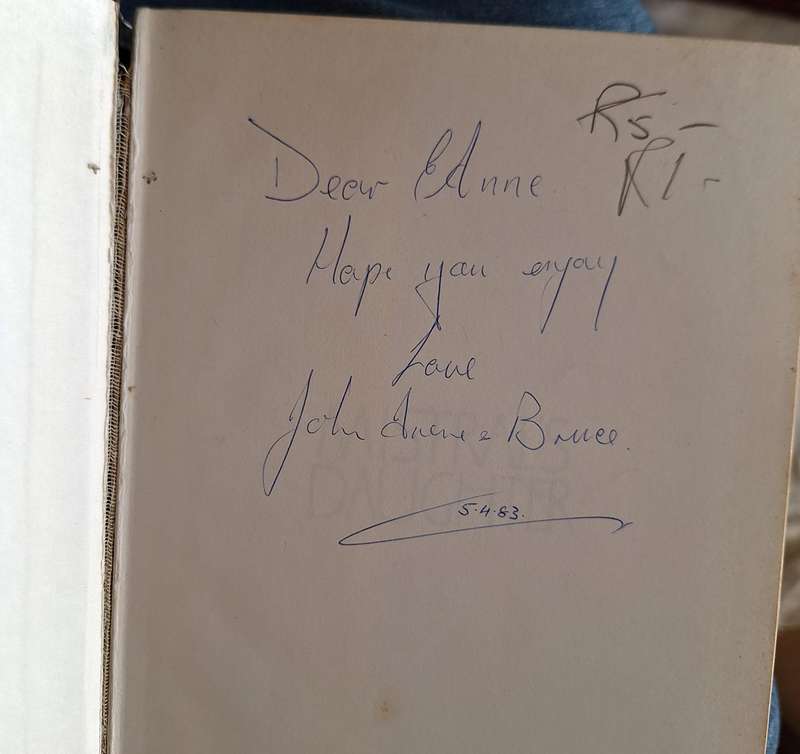 R5,-
R1-
Dear Anne
Hope you enjoy
Love
John Irene & Bruce.
5.4.83.
DAUGHTER